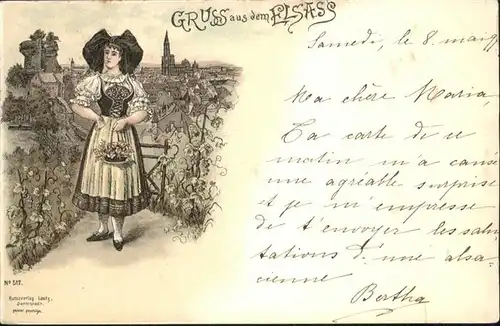 GRUSS aus dem ELSASS
Samedi, le 8. mai 97
Ma chère Maria,
Ta carte de ce
matin m'a causé
une agréable surprise
et je m'empresse
de t'envoyer les salu
tations d'une alsa
cienne
Bertha
No 517.
Kunstverlag Lautz,
Darmstadt.